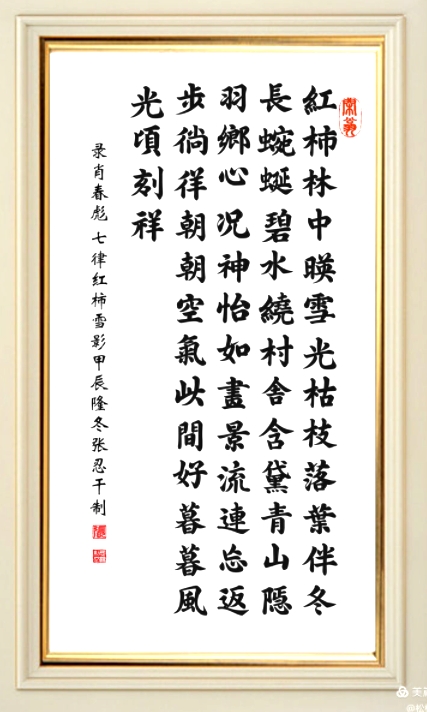 紅柿林中暎雪光枯枝落葉伴冬
長蜿蜒碧水繞村舍含黛青山隱
羽鄉心况神怡如畫景流連忘返
步徜徉朝朝空氣此間好暮暮風
光頃刻祥
录肖春彪七律红柿雪影甲辰隆冬张忍干制